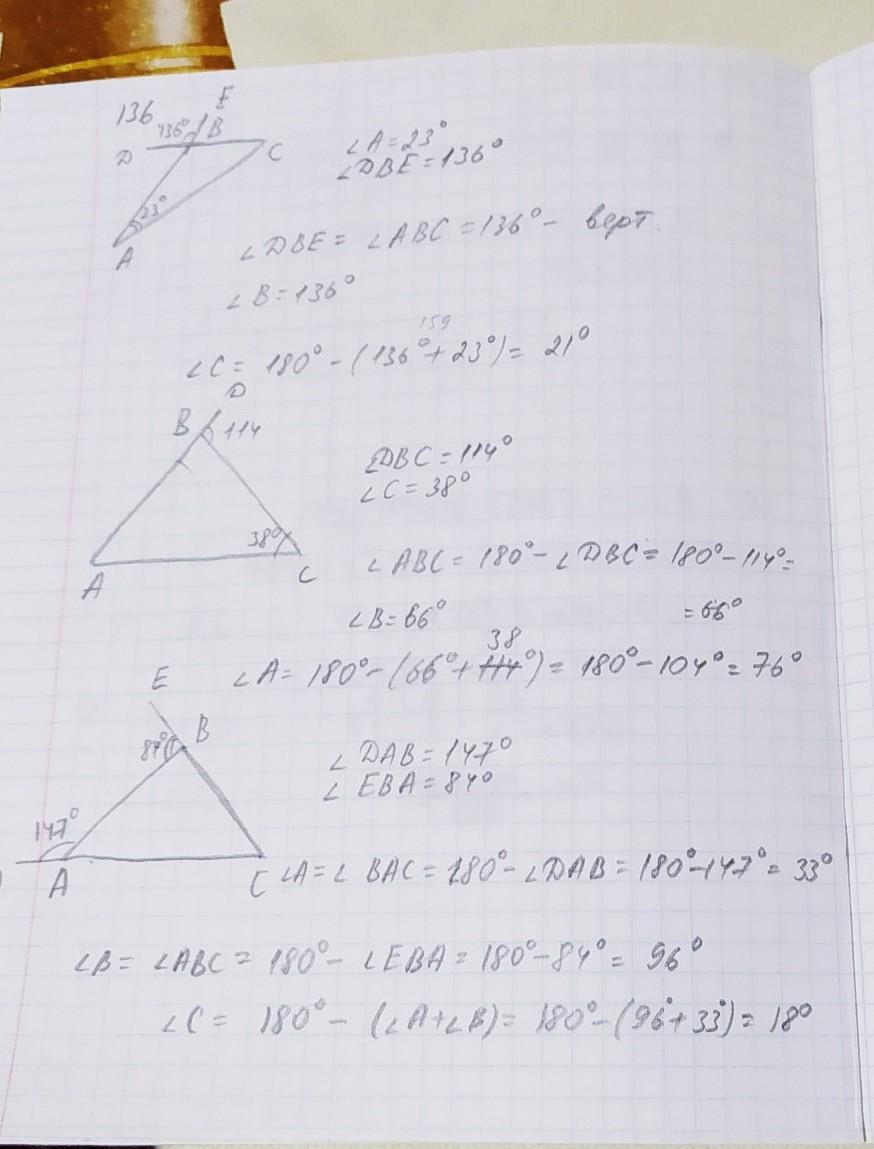 136
E
136°
B
D
C
23°
A
∠A = 23°
∠DBE = 136°
∠DBE = ∠ABC = 136° - верт.
∠B = 136°
159
∠C = 180° - (136° + 23°) = 21°
D
B
114
38°
A
C
∠DBC = 114°
∠C = 38°
∠ABC = 180° - ∠DBC = 180° - 114° =
= 66°
∠B = 66°
38
∠A = 180° - (66° + 114°) = 180° - 104° = 76°
E
B
147°
A
C
∠DAB = 147°
∠EBA = 84°
∠A = ∠BAC = 180° - ∠DAB = 180° - 147° = 33°
∠B = ∠ABC = 180° - ∠EBA = 180° - 84° = 96°
∠C = 180° - (∠A + ∠B) = 180° - (96° + 33°) = 18°